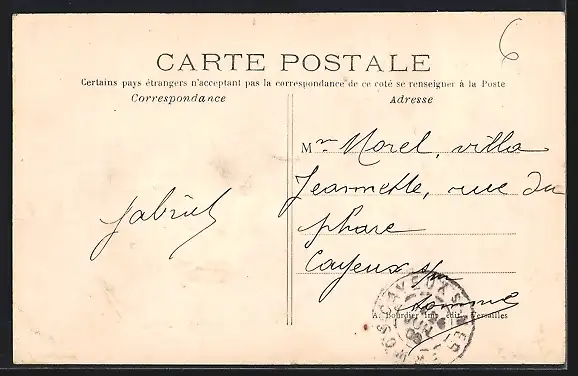 6
CARTE POSTALE
Certains pays étrangers n'acceptant pas la correspondance de ce coté se renseigner à la Poste
Correspondance
Adresse
Mr Morel, villa
Jeannette, rue du
phare
Cayeux s/m
Somme
Gabriel
A. Bourdier Imp. edit. Versailles
CAYEUX S MER